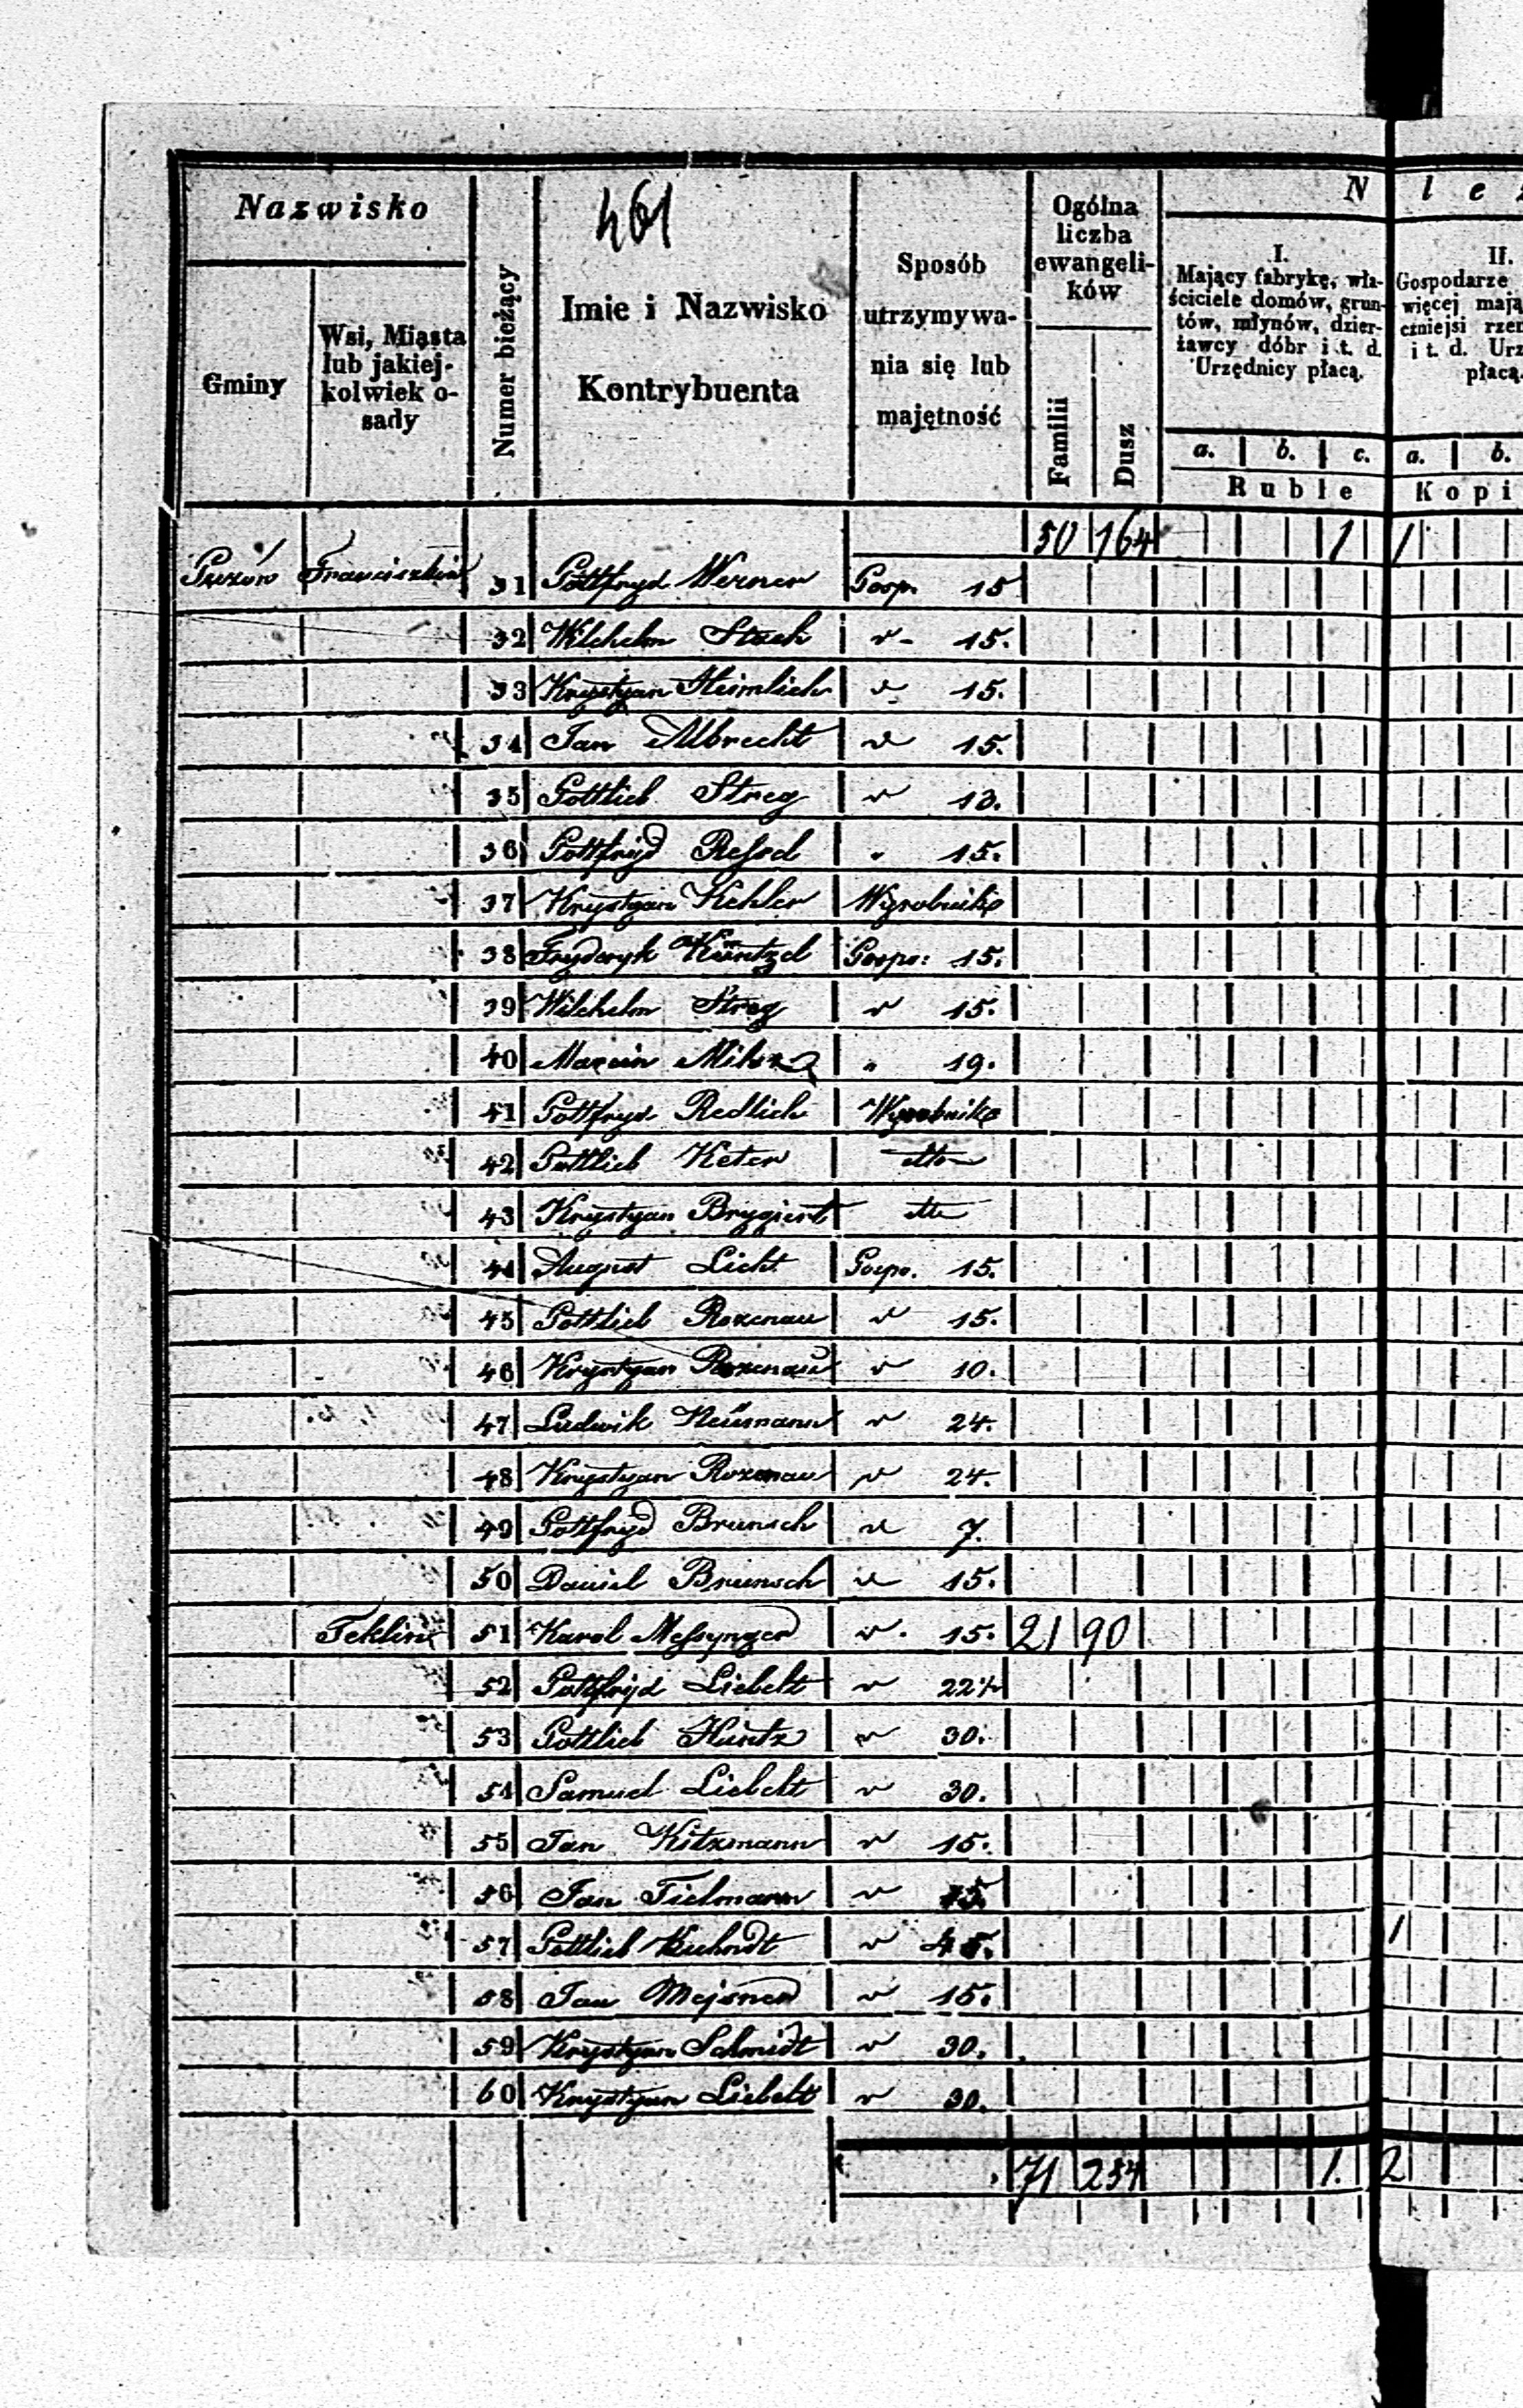 Nazwisko
Gminy
Wsi, Miasta
lub jakiej-
kolwiek o-
sady
Numer bieżący
461
Imie i Nazwisko
Kontrybuenta
Sposób
utrzymywa-
nia się lub
majętność
Ogólna
liczba
ewangeli-
ków
Familii
Dusz
N i e
I.
Mający fabrykę, wła-
ściciele domów, grun-
tów, młynów, dzier-
żawcy dóbr i t. d.
Urzędnicy płacą.
a. b. c.
Ruble
II.
Gospodarze
więcej mają
czniejsi rze
i t. d. Urz
płacą
a. b.
Kopi
50 164 1 1
Franciszkin 31 Gottfryd Werner Gosp. 15
32 Wilchelm Stach v - 15.
33 Krystyan Heimlich v 15.
34 Jan Albrecht v 15.
35 Gottlieb Streg v 13.
36 Gottfryd 〃 15.
37 Krystyan Kehler Wyrobnik
38 Fryderyk Küntzel Gospo: 15.
39 Wilchelm Streg v 15.
40 Marcin 〃 19.
41 Gottfryd Redlich Wyrobnik
42 Gottlieb Keter dtto
43 Krystyan Brygiert dtto
44 August Licht Gospo. 15.
45 Gottlieb Rozenau v 15.
46 Krystyan Rozenau v 10.
47 Ludwik Neümann v 24.
48 Krystyan Rozenau v 24.
49 Gottfryd Brunsch v 7.
50 Daniel Brunsch v 15.
Teklin 51 Karol Messynger v. 15. 21 90
52 Gottfryd Liebelt v 22½
53 Gottlieb Huntz v 30.
54 Samuel Liebelt v 30.
55 Jan Kitzmann v 15.
56 Jan Tielmann v
57 Gottlieb v 45. 1
58 Jan Mejsner v 15.
59 Krystyan Schmidt v 30.
60 Krystyan Liebelt v 30.
71 254 1. 2